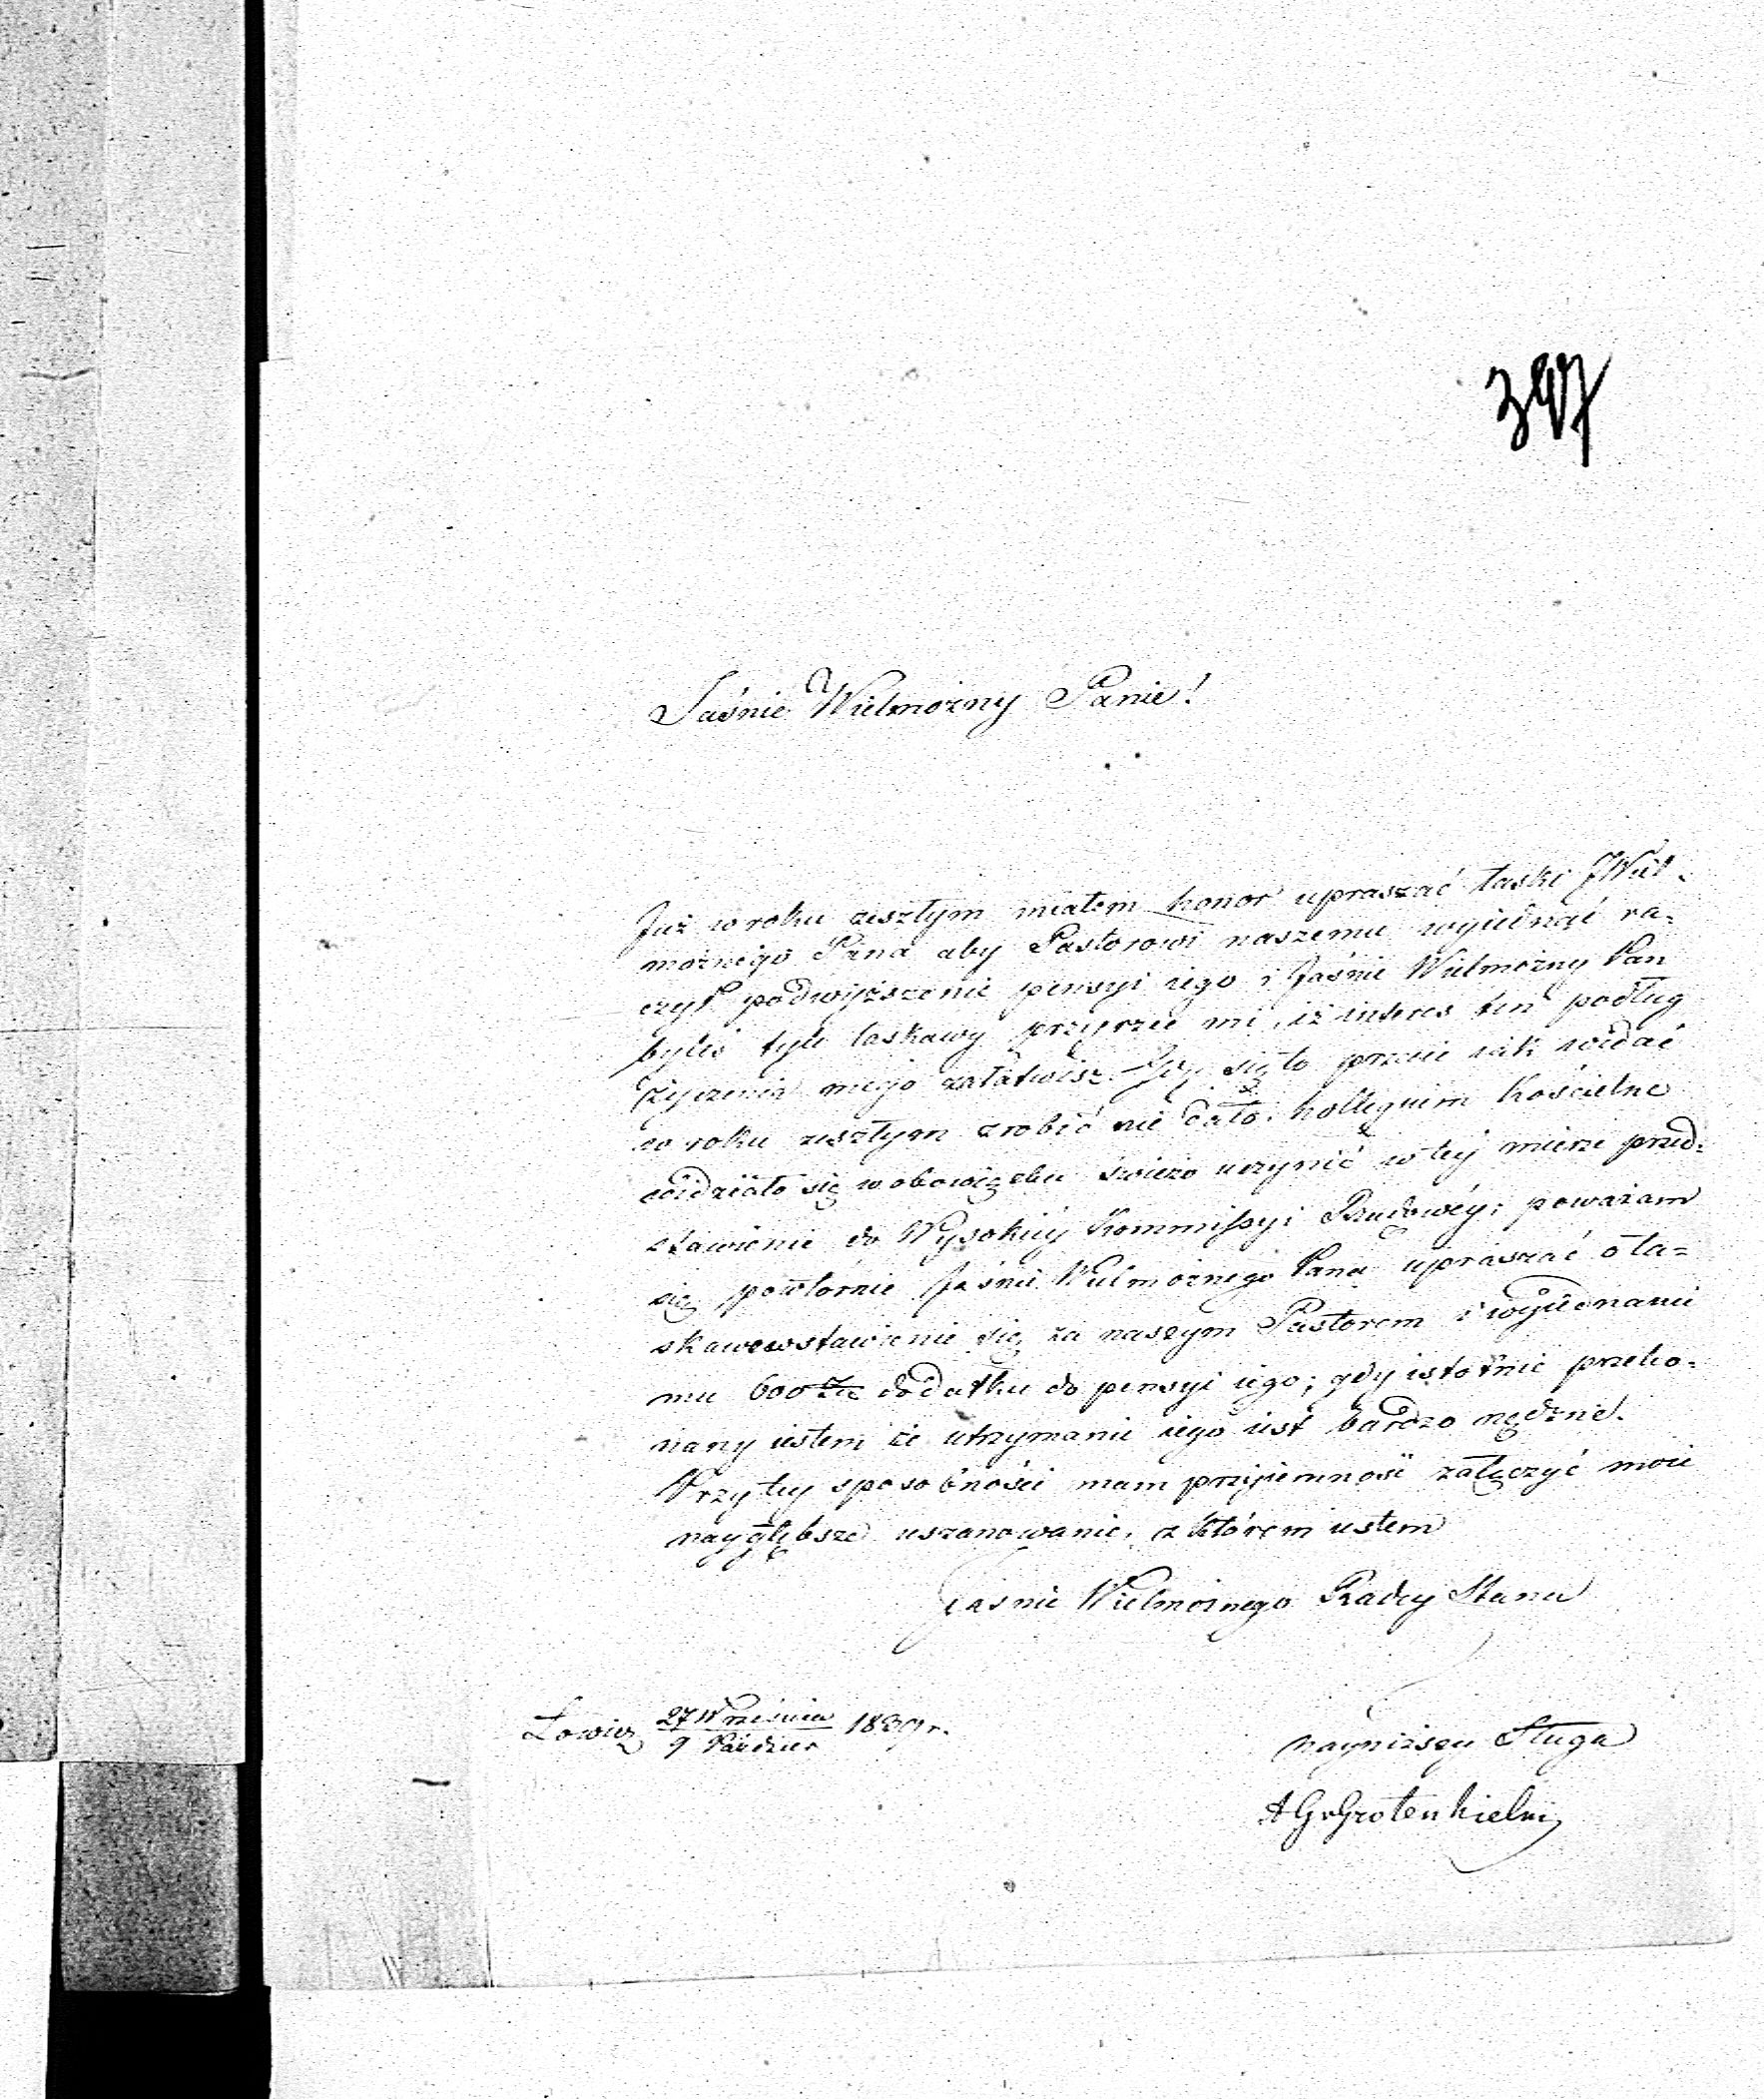 397
Jaśnie Wielmożny Panie!
Już w roku zeszłym miałem honor upraszać łaski JWiel-
możnego Pana aby Pastorowi naszemu wyiednąć ra=
czył podwyższenie pensyi iego i Jaśnie Wielmożny Pan
byłeś tyle łaskawy przyrzec mi, iż interes ten podług
życzenia mego załatwisz. Gdy się to przecie iak widać
w roku zeszłym zrobić nie dało, kollegium Kościelne
widziało się w obowiązku świeżo uczynić w tey mierze przed=
stawienie do Wysokiey Kommissyi Rządowéy; poważam
się powtórnie Jaśnie Wielmożnego Pana upraszać o ła=
skawe wstawienie się za naszym Pastorem i wyiednanie
mu 600 Złł dodatku do pensyi iego; gdy istotnie przeko=
nany iestem że utrzymanie iego iest bardzo nędzne.
Przy tey sposobności mam przyiemność załączyć moie
naygłębsze uszanowanie, z którem iestem
Jaśnie Wielmożnego Radcy Stanu
Łowicz 27 Września / 9 Paździer 1839 r.
nayniższy Sługa
A G v Grotenhielm